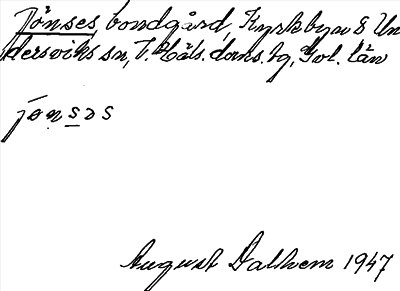 Jönses, bondgård, Kyrkbyn 8 Un
dersviks sn, V. Häls. doms. tg, Gvl. län
jōnsɘs
August Dalhem 1947